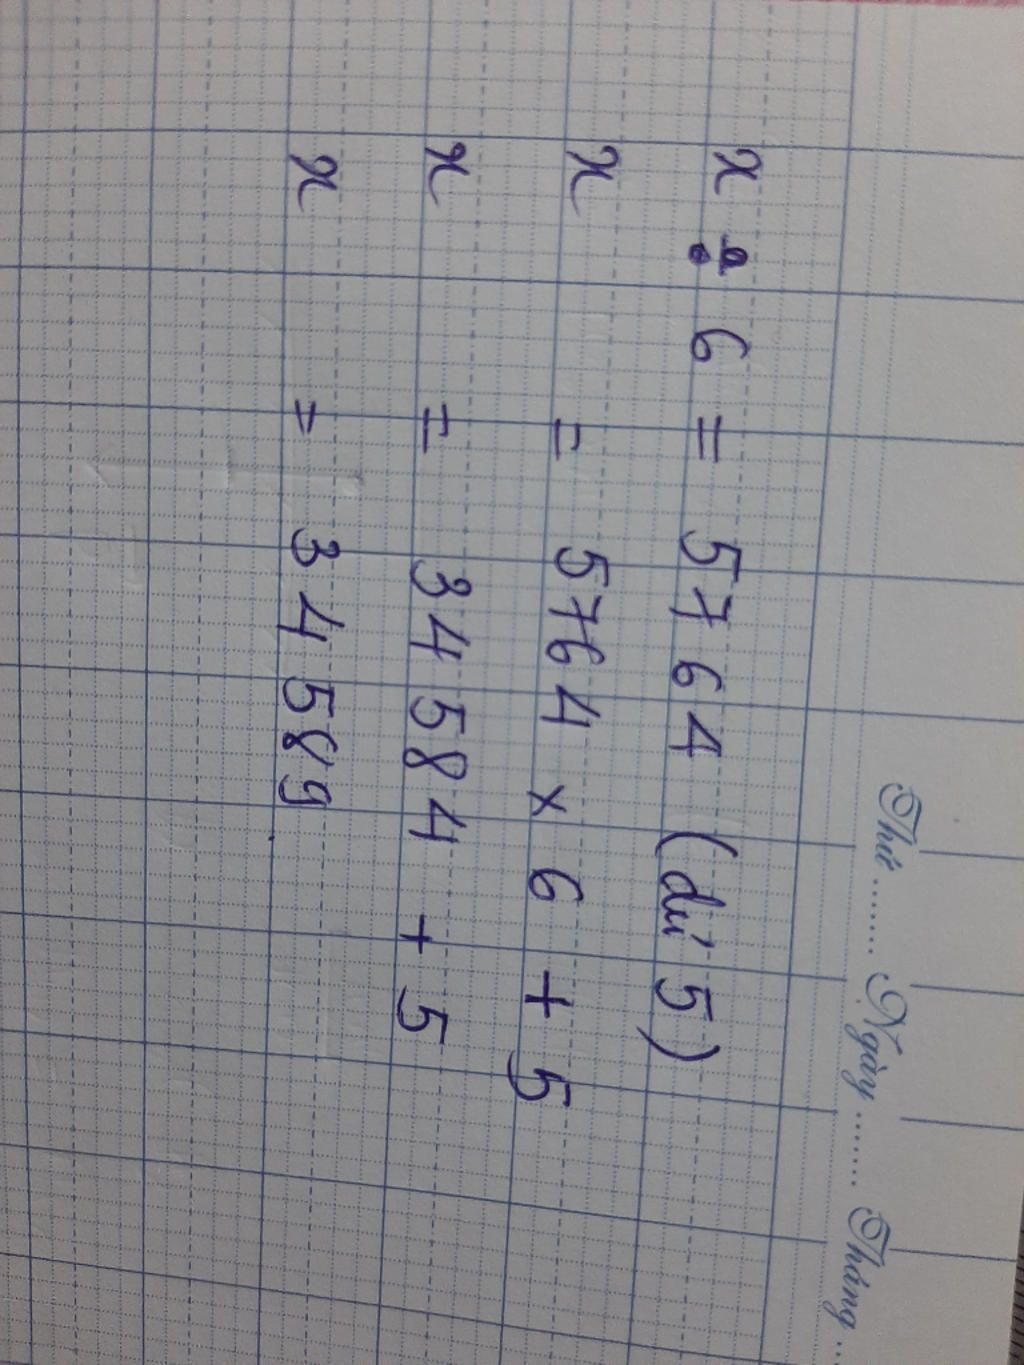 Thứ ....... Ngày ....... Tháng ..
x : 6 = 5764 (dư 5)
x = 5764 x 6 + 5
x = 34584 + 5
x = 34589